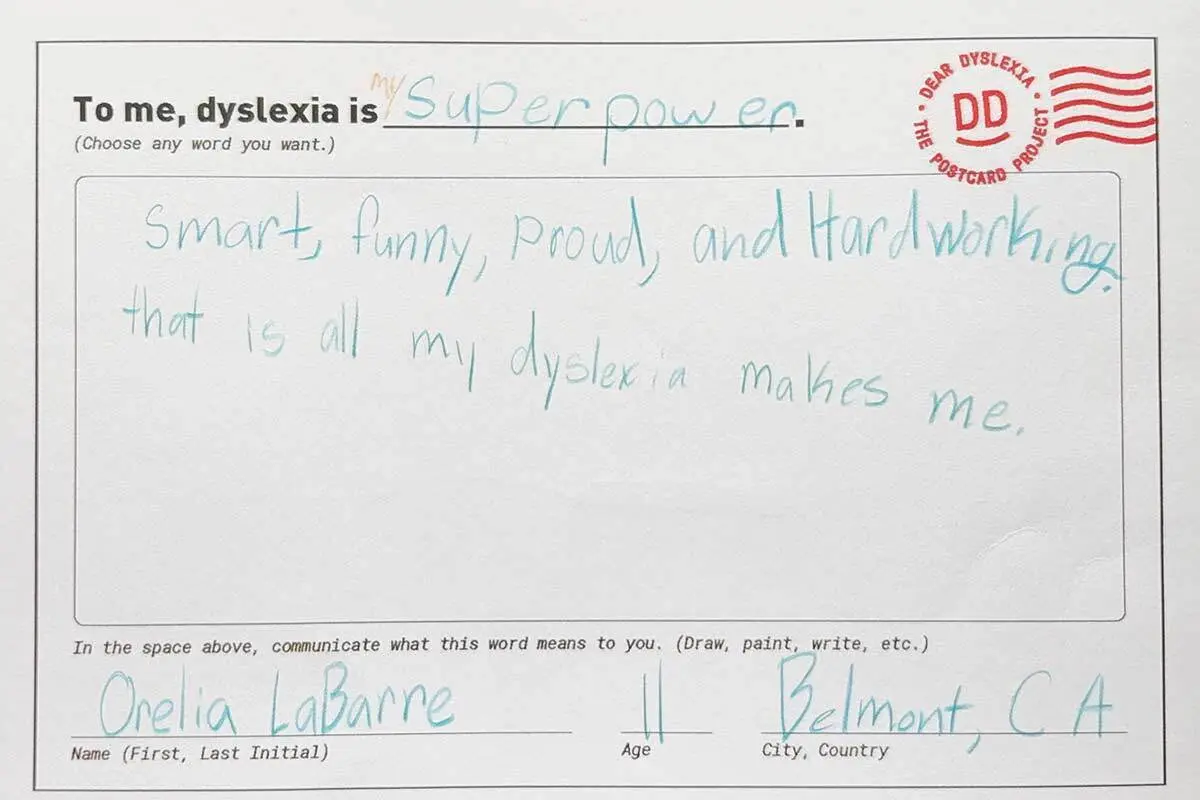 To me, dyslexia is my Superpower.
(Choose any word you want.)
DEAR DYSLEXIA • THE POSTCARD PROJECT •
DD
Smart, funny, Proud, and Hardworking.
that is all my dyslexia makes me.
In the space above, communicate what this word means to you. (Draw, paint, write, etc.)
Orelia LaBarre 11 Belmont, CA
Name (First, Last Initial) Age City, Country